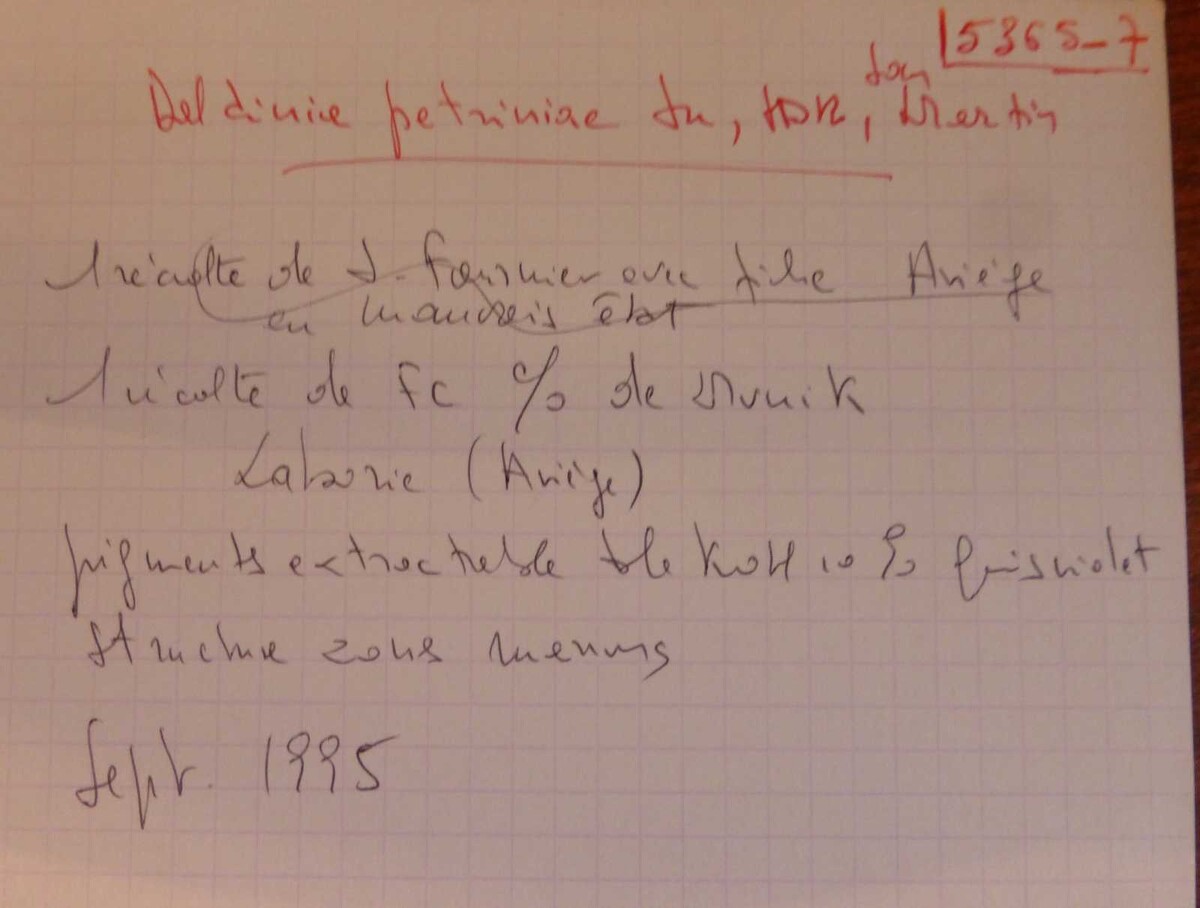 5365-7
Daldinia petriniae
1 récolte de J. Fournier avec fiche Ariège
en mauvais état
1 récolte de FC % de Munik
Laborie (Ariège)
pigments extractible ds le KOH 10 % gris violet
structure zones
Sept. 1995